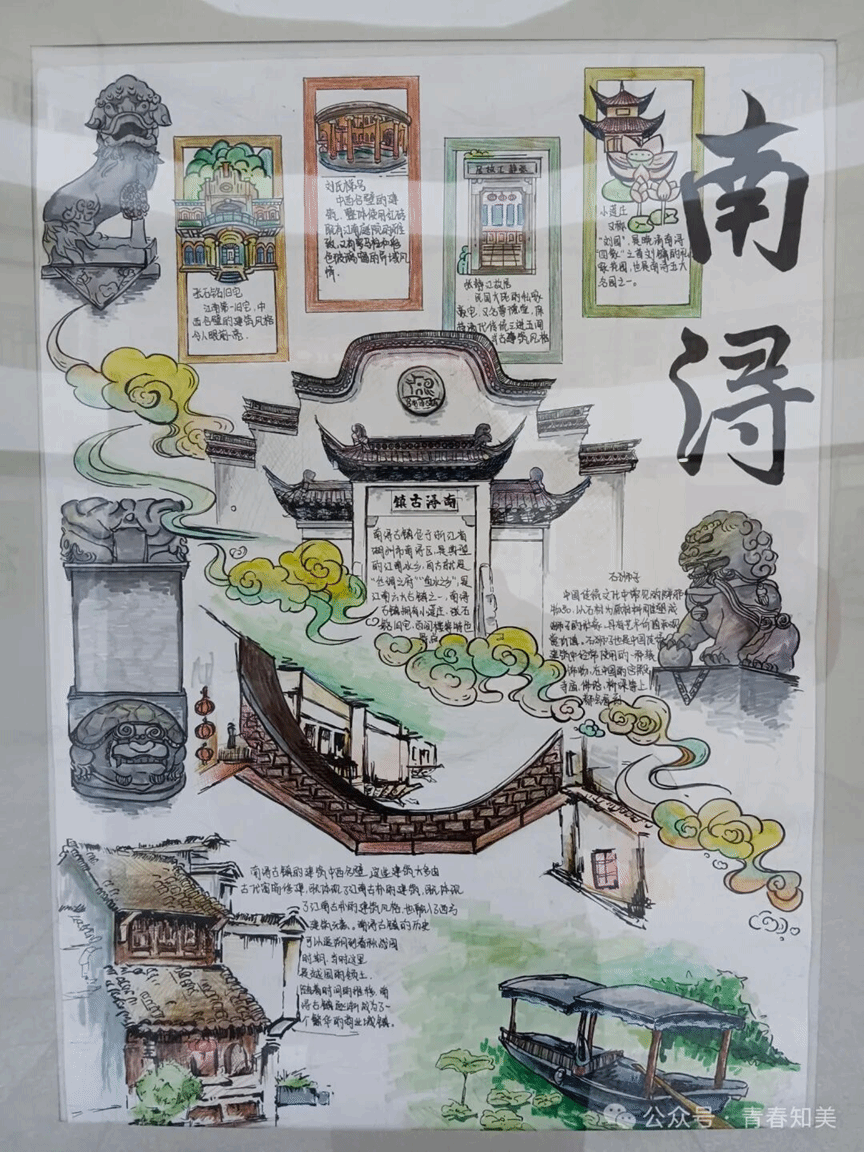 南
浔
张石铭旧宅
江南第一旧宅，中
西合璧的建筑风格
令人眼前一亮.
刘氏梯号
中西合璧的建
筑，整体使用红砖
既有江南庭院的雅
致，又有罗马柱和彩
色玻璃窗的异域风
情.
张静江故居
民国大佬的私家
小莲庄
又称
“刘园”，是晚清南浔
“四象”之首刘镛的私
家花园，也是南浔五大
名园之一。
南浔古镇
南浔古镇位于浙江省
湖州市南浔区，是典型
的江南水乡，自古就是
“丝绸之府”“鱼米之乡”，是
江南六大古镇之一，南浔
古镇拥有小莲庄、张石
铭旧宅、百间楼等特色
景点
石狮子
中国传统文化中常见的辟邪
物品，以石材为原材料
狮子的
石狮子也是中国传统
建筑中经常使用的一种装
饰物，在中国的宫殿、
寺庙、佛塔、桥梁
都会看到
南浔古镇的建筑中西合璧，这些建筑大多由
古代富商修建，既体现了江南古朴的建筑，既体现
了江南古朴的建筑风格，也融入了西方
建筑元素。南浔古镇的历史
可以追溯到春秋战国
时期，当时这里
是越国的领土.
随着时间的推移，南
浔古镇逐渐成为了一
个繁华的商业城镇。
公众号·青春知美